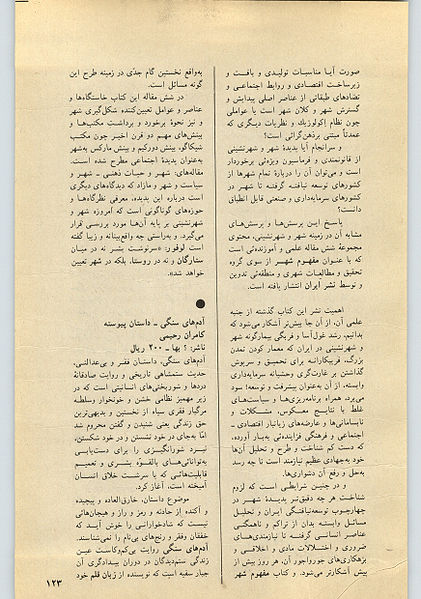 صورت آیا مناسبات تولیدی و بافت و
زیرساخت اقتصادی و روابط اجتماعی و
تضادهای طبقاتی از عناصر اصلی پیدایش و
گسترش شهر و کلان شهر است یا عواملی
چون نظام اکولوژیک و نظریات دیگری که
عمدتاً مبتنی برذهن‌گرائی است؟
و سرانجام آیا پدیدهٔ شهر و شهرنشینی
از قانونمندی و فرماسیون ویژه‌ئی برخوردار
است و می‌توان آن را دربارهٔ تمام شهرها از
کشورهای توسعه نیافته گرفته تا شهر در
کشورهای سرمایه‌داری و صنعتی قابل انطباق
دانست؟
پاسخ این پرسش‌ها و پرسش‌های
مشابه آن در زمینه شهر و شهرنشینی، محتوی
مجموعهٔ شش مقالهٔ علمی و آموزنده‌ئی است
که با عنوان مفهوم شهر از سوی گروه
تحقیق و مطالعات شهری و منطقه‌ئی تدوین
و توسط نشر ایران انتشار یافته است.
اهمیت نشر این کتاب گذشته از جنبه
علمی آن، از آن جا بیش‌تر آشکار می‌شود که
بدانیم، رشد غول‌آسا و فربگی بیمارگونه شهر
و شهرنشینی در ایران که معمار کودن تمدن
بزرگ، فریبکارانه برای تحمیق و سرپوش
گذاشتن بر غارتگری وحشیانه سرمایه‌داری
وابسته، از آن به‌عنوان پیشرفت و توسعه! سود
می‌برد، همراه برنامه‌ریزی‌ها و سیاست‌های
غلط با نتایج معکوس، مشکلات و
نابسامانی‌ها و عارضه‌های زیانبار اقتصادی -
اجتماعی و فرهنگی فزاینده‌ئی به‌بار آورده،
که دست کم شناخت و طرح و تحلیل آن‌ها
خود به‌جهادی عظیم نیازمند است تا چه رسد
به‌حل و رفع آن دشواری‌ها.
و در چنین شرایطی است که لزوم
شناخت هر چه دقیق‌تر پدیدهٔ شهر در
چهارچوب توسعه‌نیافتگی ایران و تحلیل
مسائل وابسته بدان از تراکم و ناهمگنی
عناصر انسانی گرفته تا نیازمندی‌های
ضروری و اختلالات مادی و اخلاقی و
بزهکاری‌های جورواجور آن، هر روز بیش از
پیش آشکارتر می‌شود. و کتاب مفهوم شهر
به‌واقع نخستین گام جدّی در زمینه طرح این
گونه مسائل است.
در شش مقاله این کتاب خاستگاه‌ها و
عناصر و عوامل تعیین‌کننده شکل‌گیری شهر
و نیز نحوهٔ برخورد و برداشت مکتب‌ها و
بینش‌های مهم دو قرن اخیر چون مکتب
شیکاگو، بینش دورکیم و بینش مارکس به‌شهر
به‌عنوان پدیدهٔ اجتماعی مطرح شده است.
مقاله‌های: شهر و حیات ذهنی - شهر و
سیاست و شهر و مازاد که دیدگاه‌های دیگری
است درباره این پدیده، معرفی نظرگاه‌ها و
حوزه‌های گوناگونی است که امروزه شهر و
شهرنشینی بر پایه آن‌ها مورد بررسی قرار
می‌گیرد. و به‌راستی چه واقع‌بینانه و زیبا گفته
است لوفور: «سرنوشت بشر نه در میان
ستارگان و نه در روستا، بلکه در شهر تعیین
خواهد شد».
●
آدم‌های سنگی - داستان پیوسته
کامران رحیمی
ناشر: ؟ بها - ۲۰۰ ریال
آدم‌های سنگی، داستان فقر و بی‌عدالتی،
حدیث ستمشاهی تاریخی و روایت صادقانهٔ
دردها و شوربختی‌های انسانیتی است که در
زیر مهمیز نظامی خشن و خونخوار وسلطه
مرگبار فقری سیاه از نخستین و بدیهی‌ترین
حق زندگی یعنی شنیدن و گفتن محروم شد
امّا به‌جای در خود نشستن و در خود شکستن،
نبرد شورانگیزی را برای دست‌یابی
به‌توانائی‌های بالقوّه بشری و تعمیم
قابلیت‌هائی که با سرشت خلاق انسان
آمیخته است، آغاز کرد.
موضوع داستان، خارق‌العاده و پیچیده
و آکنده از حادثه و رمز و راز و هیجان‌هائی
نیست که شادخوارانی را خوش آید که
خفقان وفقر و رنج‌های بی‌نام را نمی‌شناسند.
آدم‌های سنگی روایت بی‌کم‌وکاست عین
زندگی ستمدیدگان در دوران بیدادگری آن
جبار سفیه است که نویسنده از زبان قلم خود
۱۲۳